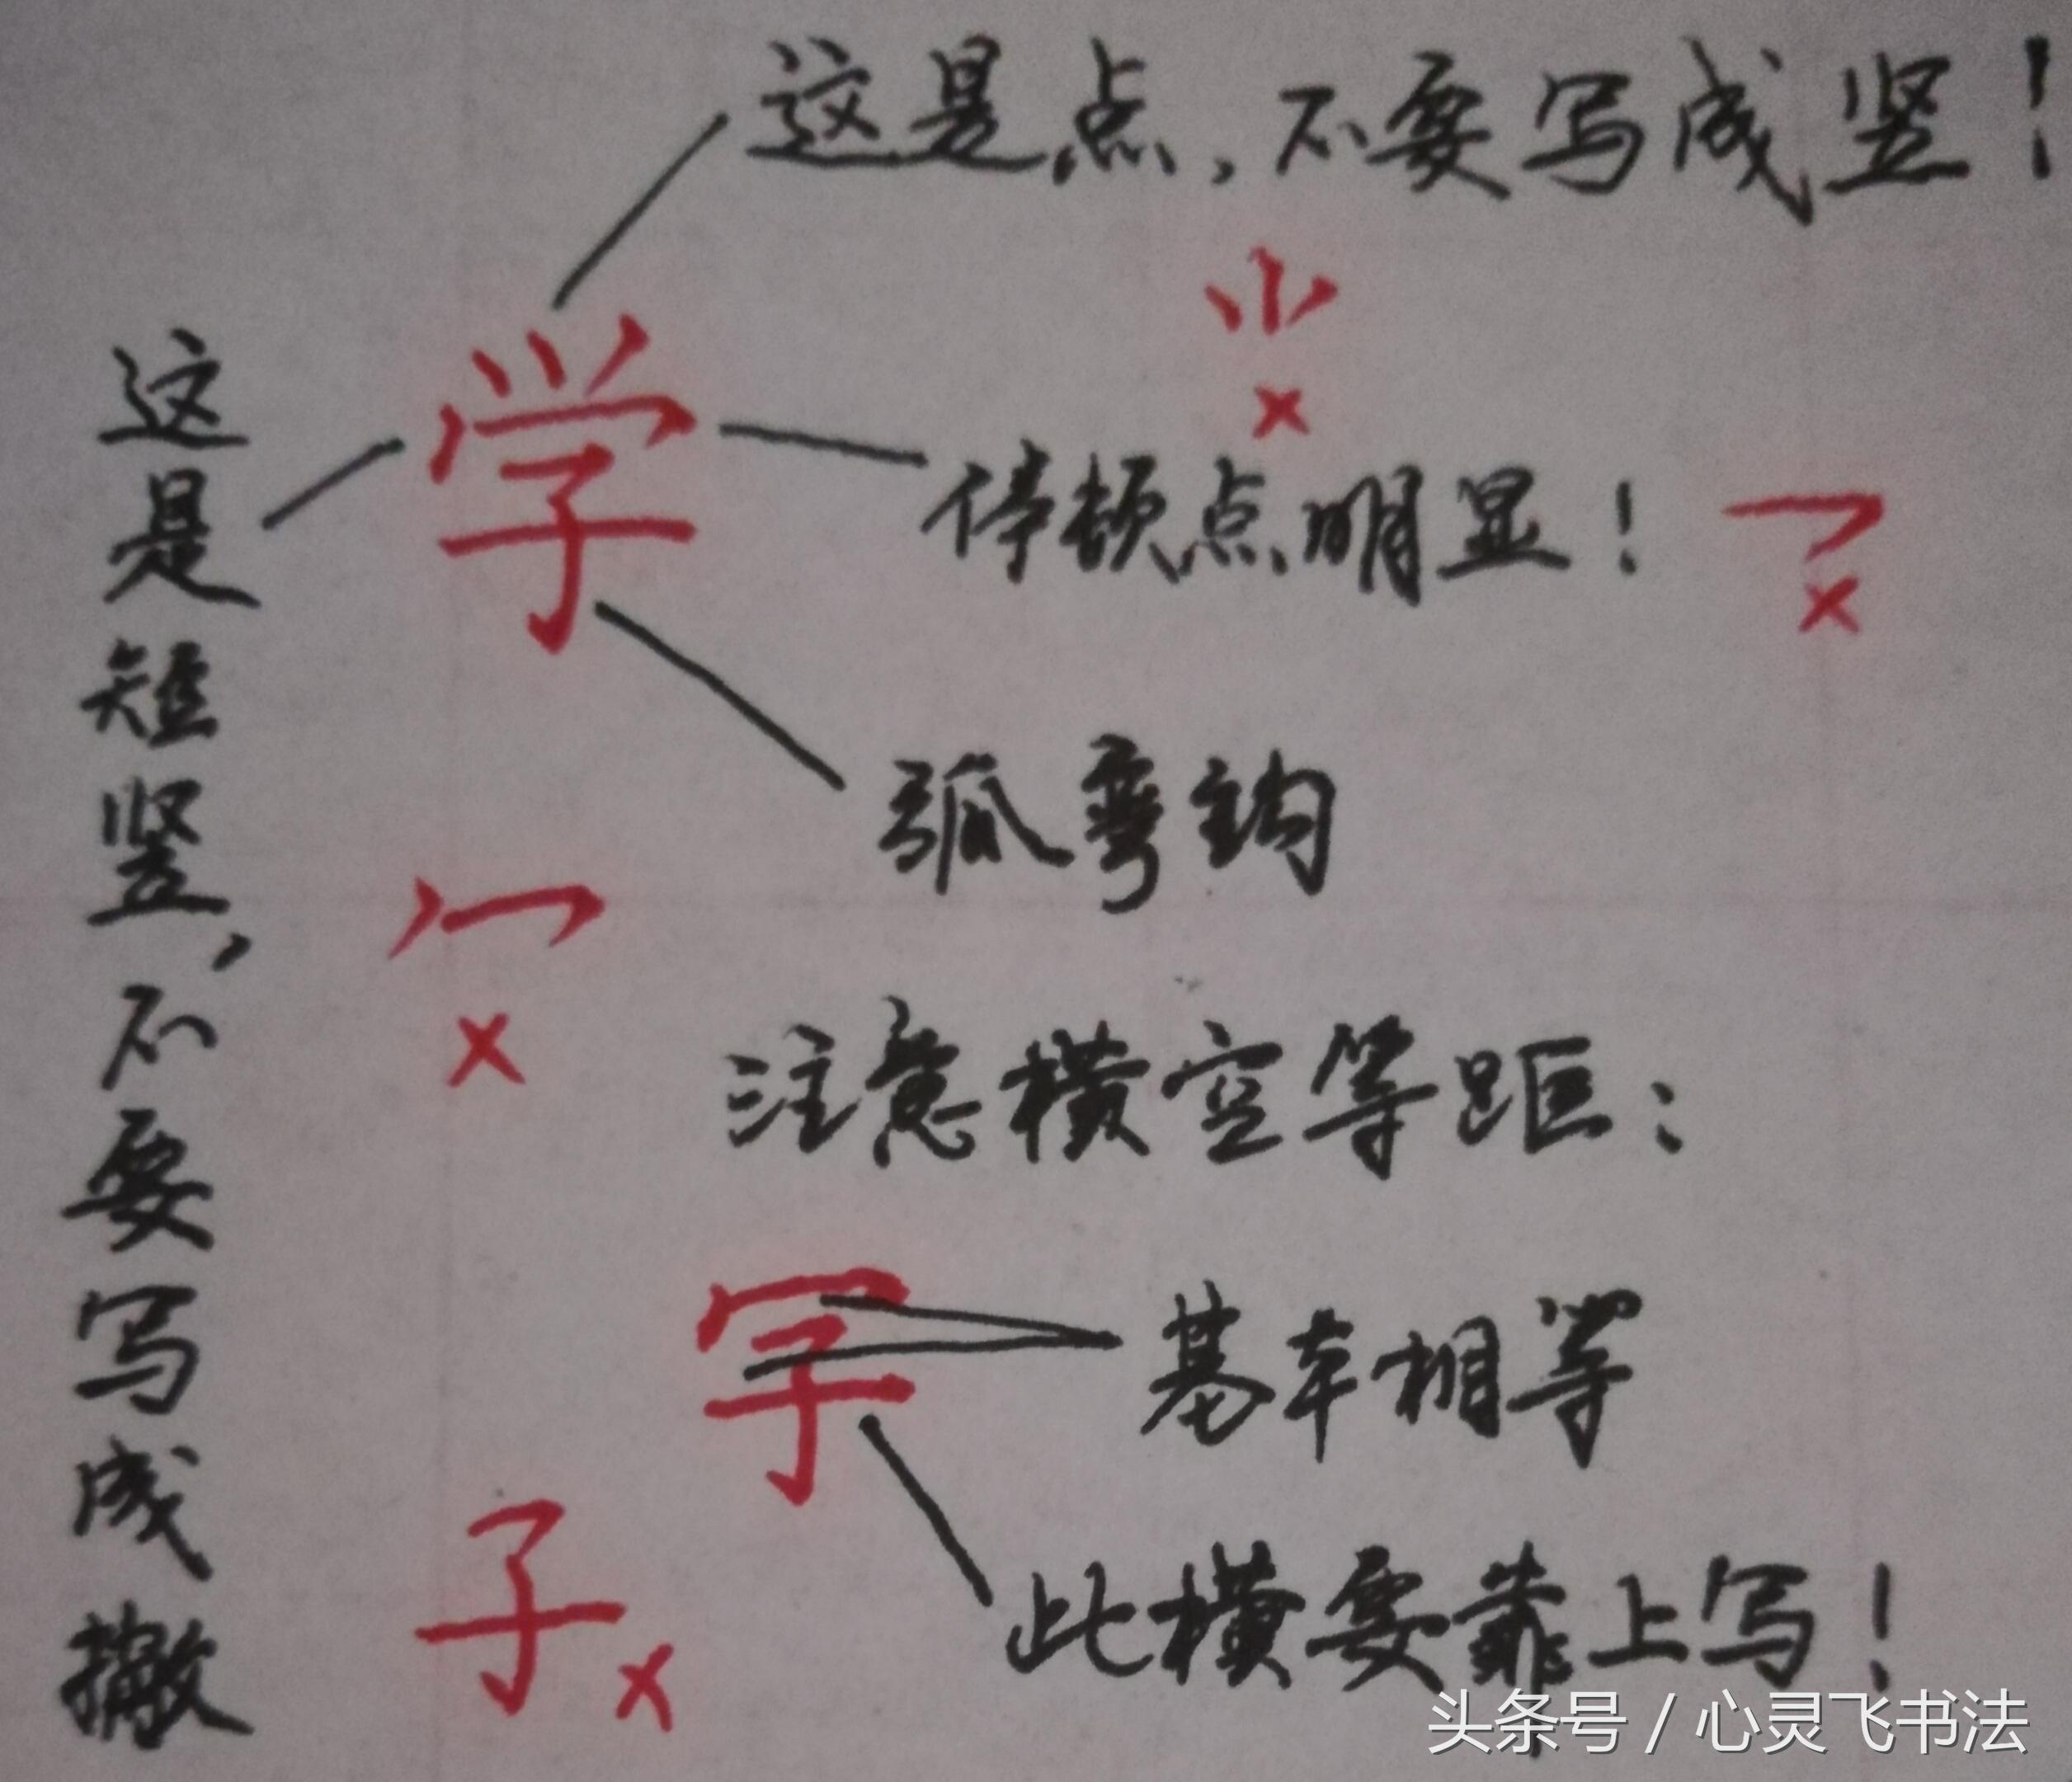 这是点，不要写成竖！
学
停顿点明显！
这是短竖，不要写成撇
弧弯钩
注意横空等距：
字
基本相等
子
此横要靠上写！
头条号 / 心灵飞书法